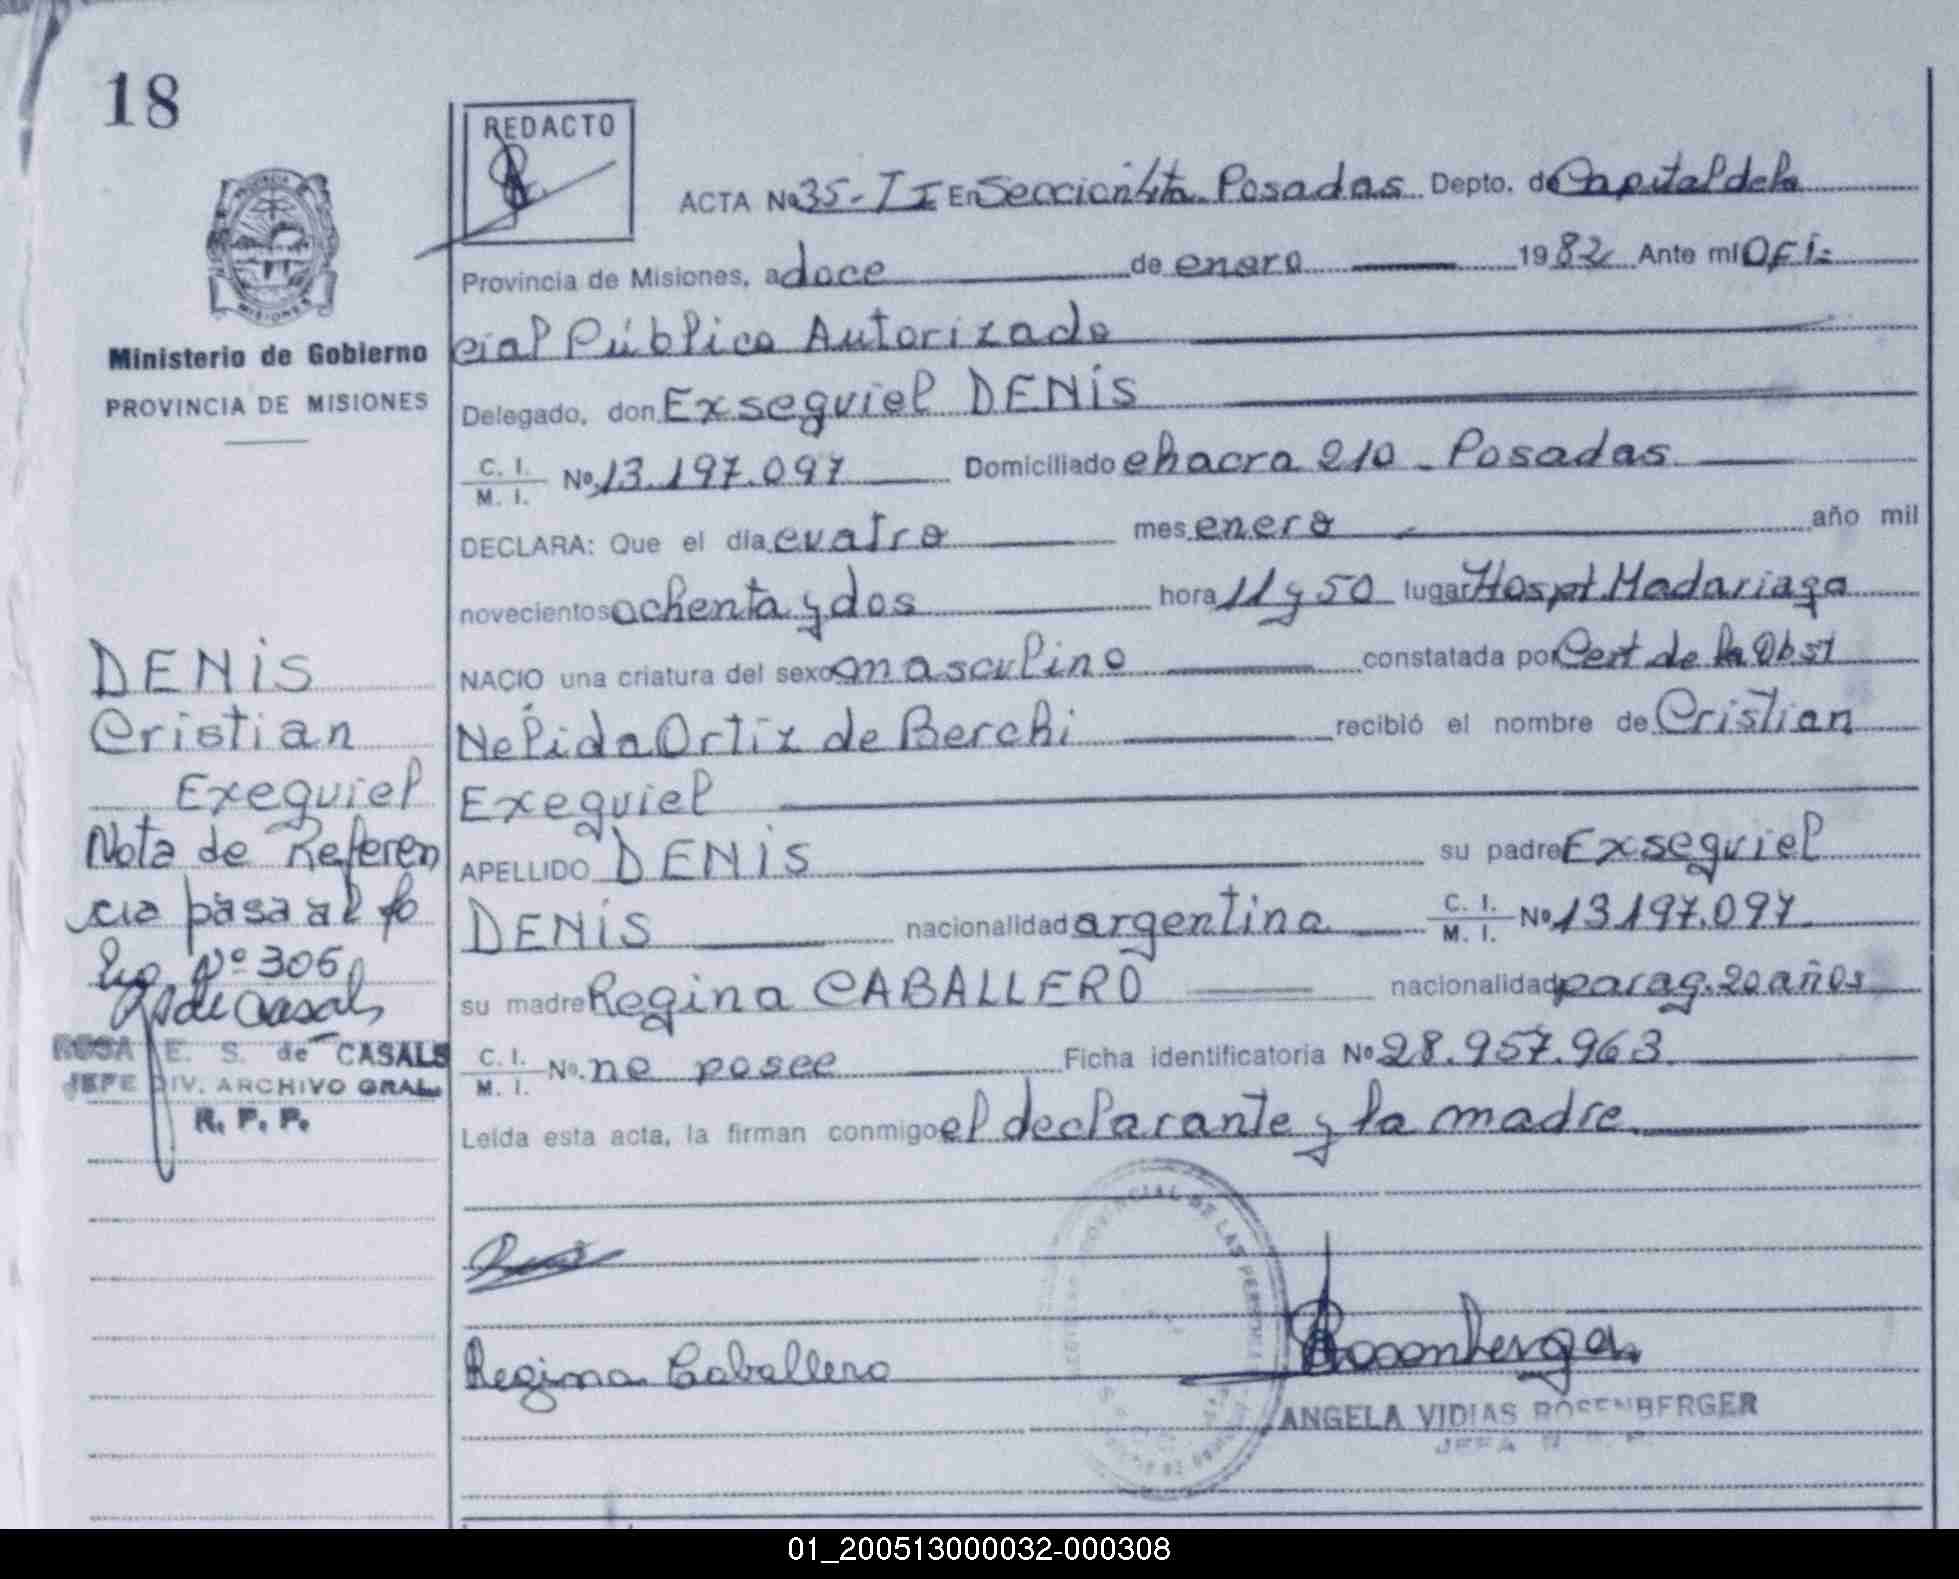 18
REDACTO
ACTA Nº 35-II En Sección 4ta Posadas Depto. de Capital de la
Provincia de Misiones, a doce de enero 1982 Ante mí Ofi=
cial Público Autorizado
Ministerio de Gobierno
PROVINCIA DE MISIONES
Delegado, don Exsequiel DENIS
C. I. / M. I. Nº 13.197.097 Domiciliado chacra 210 - Posadas
DECLARA: Que el día cuatro mes enero año mil
novecientos ochenta y dos hora 11 y 50 lugar Hospt. Madariaga
NACIO una criatura del sexo masculino constatada por Cert de la Obst
Nélida Ortiz de Berchi recibió el nombre de Cristian
Exequiel
APELLIDO DENIS su padre Exsequiel
DENIS nacionalidad argentina C. I. / M. I. Nº 13197.097
su madre Regina CABALLERO nacionalidad parag. 20 años
C. I. / M. I. Nº. no posee Ficha identificatoria Nº 28.957.963
Leída esta acta, la firman conmigo el declarante y la madre
DENIS
Cristian
Exequiel
Nota de Referen
cia pasa al fo
lio Nº 306
R S de Casals
ROSA E. S. de CASALS
JEFE DIV. ARCHIVO GRAL.
R. P. P.
PROVINCIAL DE LAS PERSONAS
Regina Caballero
Rosenberger
ANGELA VIDIAS ROSENBERGER
01_200513000032-000308